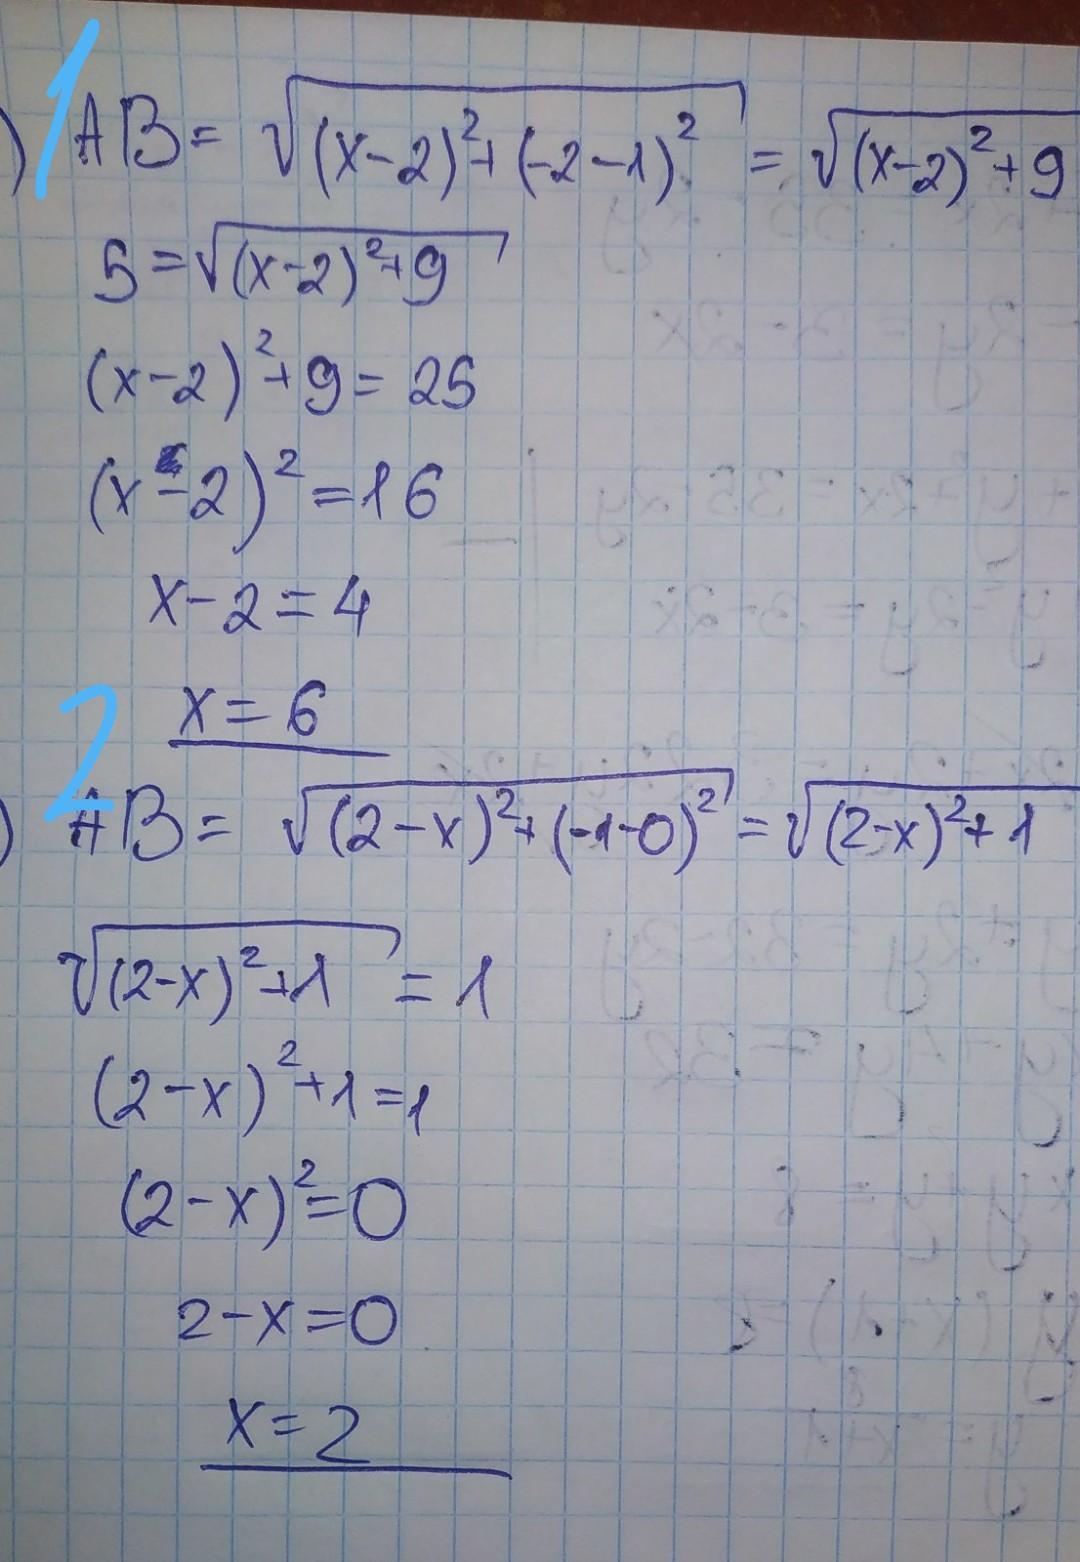 1) AB = √((x-2)²+(-2-1)²) = √((x-2)²+9
5 = √((x-2)²+9)
(x-2)²+9 = 25
(x-2)² = 16
x-2 = 4
x = 6
2) AB = √((2-x)²+(-1-0)²) = √((2-x)²+1
√((2-x)²+1) = 1
(2-x)²+1 = 1
(2-x)² = 0
2-x = 0
x = 2